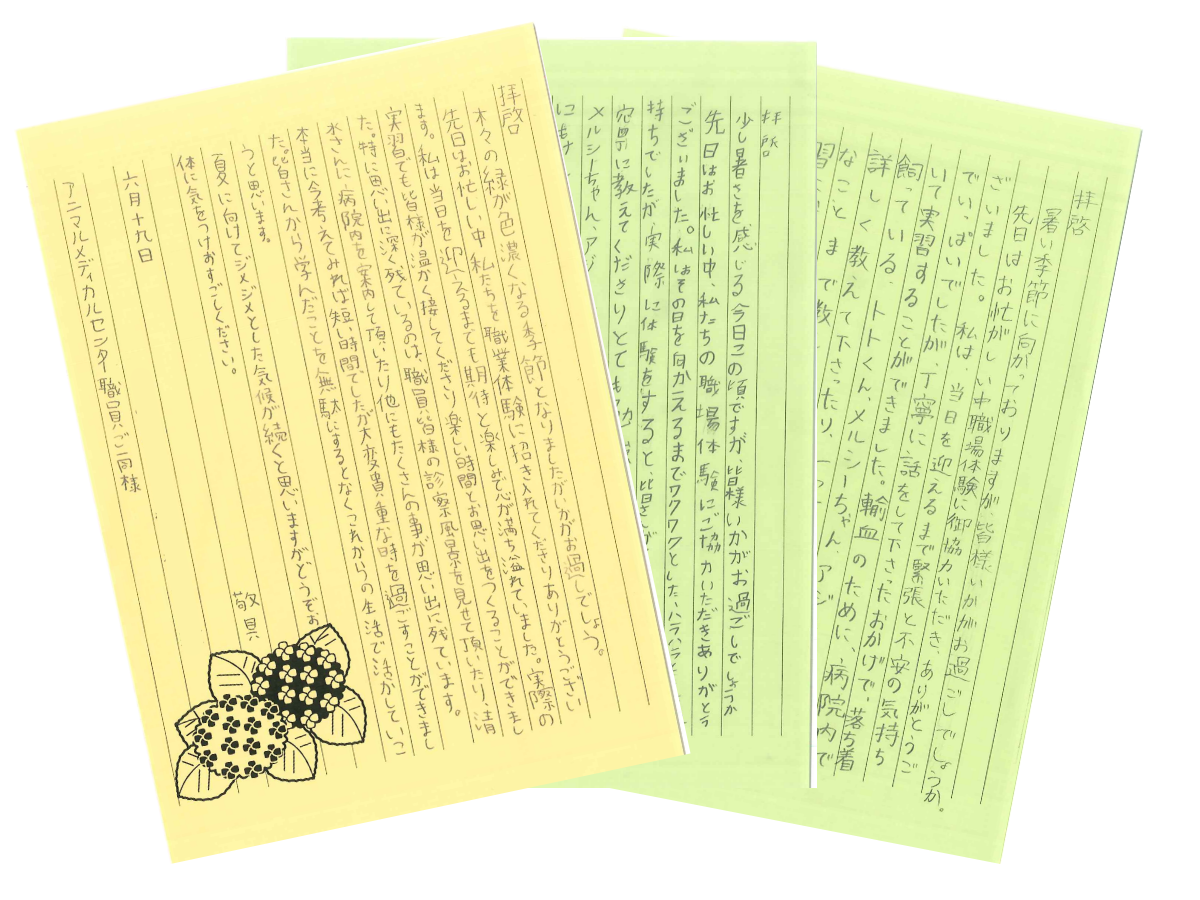 拝啓
木々の緑が色濃くなる季節となりましたがいかがお過しでしょう。
先日はお忙しい中私たちを職業体験に招き入れてくださりありがとうござい
ます。私は当日を迎えるまでも期待と楽しみで心が満ち溢れていました。実際の
実習でも皆様が温かく接してくださり楽しい時間とお思い出をつくることができまし
た。特に思い出に深く残ているのは、職員皆様の診察風景を見せて頂いたり、清
水さんに病院内を案内して頂いたり他にもたくさんの事が思い出に残ています。
本当に今考えてみれば短い時間でしたが大変貴重な時を過ごすことができまし
た。皆さんから学んだことを無駄にするとなくこれからの生活で活かしていこ
うと思います。
夏に向けてジメジメとした気候が続くと思いますがどうぞお
体に気をつけおすごしください。
敬具
六月十九日
アニマルメディカルセンター職員ご一同様
拝啓
少し暑さを感じる今日この頃ですが、皆様いかがお過ごしでしょうか
先日はお忙しい中、私たちの職場体験にご協力いただきありがとう
ございました。私はその日を向かえるまでワクワクとした、ハラハラと
持ちでしたが実際に体験をすると、皆さんが
丁寧に教えてくださりとても
メルシーちゃん、アジ
拝啓
暑い季節に向かっておりますが、皆様いかがお過ごしでしょうか。
先日はお忙がしい中職場体験に御協力いただき、ありがとうご
ざいました。私は、当日を迎えるまで緊張と不安の気持ち
でいっぱいでしたが、丁寧に話をして下さったおかげで、落ち着
いて実習することができました。輸血のために、病院内で
飼っている、トトくん、メルシーちゃん、アジ
詳しく教えて下さったり、
なことまで教